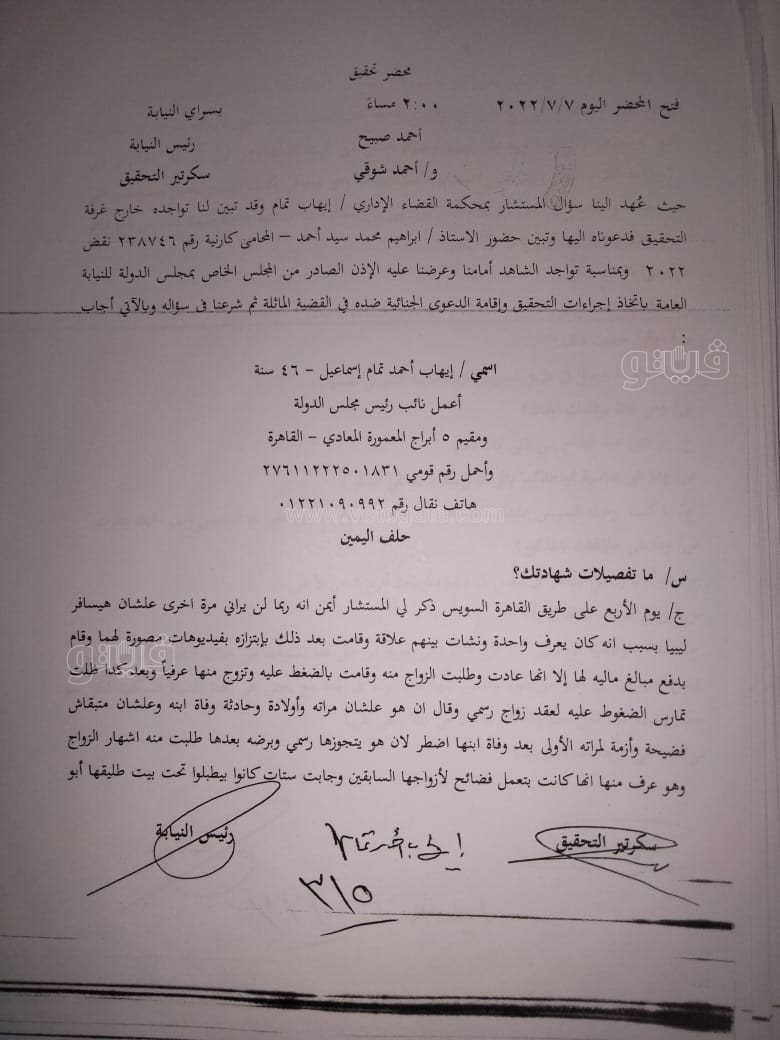 محضر تحقيق
فتح المحضر اليوم ٢٠٢٢/٧/٧ ٢:٠٠ مساءً بسراي النيابة
أحمد صبيح رئيس النيابة
و/ أحمد شوقي سكرتير التحقيق
حيث عُهد الينا سؤال المستشار بمحكمة القضاء الإداري / إيهاب تمام وقد تبين لنا تواجده خارج غرفة
التحقيق فدعوناه اليها وتبين حضور الاستاذ / ابراهيم محمد سيد أحمد – المحامى كارنية رقم ٢٣٨٧٤٦ نقض
٢٠٢٢ وبمناسبة تواجد الشاهد أمامنا وعرضنا عليه الإذن الصادر من المجلس الخاص بمجلس الدولة للنيابة
العامة باتخاذ إجراءات التحقيق وإقامة الدعوى الجنائية ضده في القضية الماثلة ثم شرعنا في سؤاله وبالآتي أجاب
:
فيتو
اسمي / إيهاب أحمد تمام إسماعيل – ٤٦ سنة
أعمل نائب رئيس مجلس الدولة
ومقيم ٥ أبراج المعمورة المعادي – القاهرة
وأحمل رقم قومي ٢٧٦١١٢٢٢٥٠١٨٣١
هاتف نقال رقم ٠١٢٢١٠٩٠٩٩٢
www.vetogate.com
حلف اليمين
س/ ما تفصيلات شهادتك؟
ج/ يوم الأربع على طريق القاهرة السويس ذكر لي المستشار أيمن انه ربما لن يراني مرة اخرى علشان هيسافر
ليبيا بسبب انه كان يعرف واحدة ونشات بينهم علاقة وقامت بعد ذلك بإبتزازه بفيديوهات مصورة لهما وقام
فيتو
بدفع مبالغ ماليه لها إلا انها عادت وطلبت الزواج منه وقامت بالضغط عليه وتزوج منها عرفياً وبعد كدا ظلت
تمارس الضغوط عليه لعقد زواج رسمي وقال ان هو علشان مراته وأولادة وحادثة وفاة ابنه وعلشان متبقاش
فضيحة وأزمة لمراته الأولى بعد وفاة ابنها اضطر لان هو يتجوزها رسمي وبرضه بعدها طلبت منه اشهار الزواج
وهو عرف منها انها كانت بتعمل فضائح لأزواجها السابقين وجابت ستات كانوا بيطبلوا تحت بيت طليقها أبو
سكرتير التحقيق إيهاب أحمد تمام رئيس النيابة
٣/٥